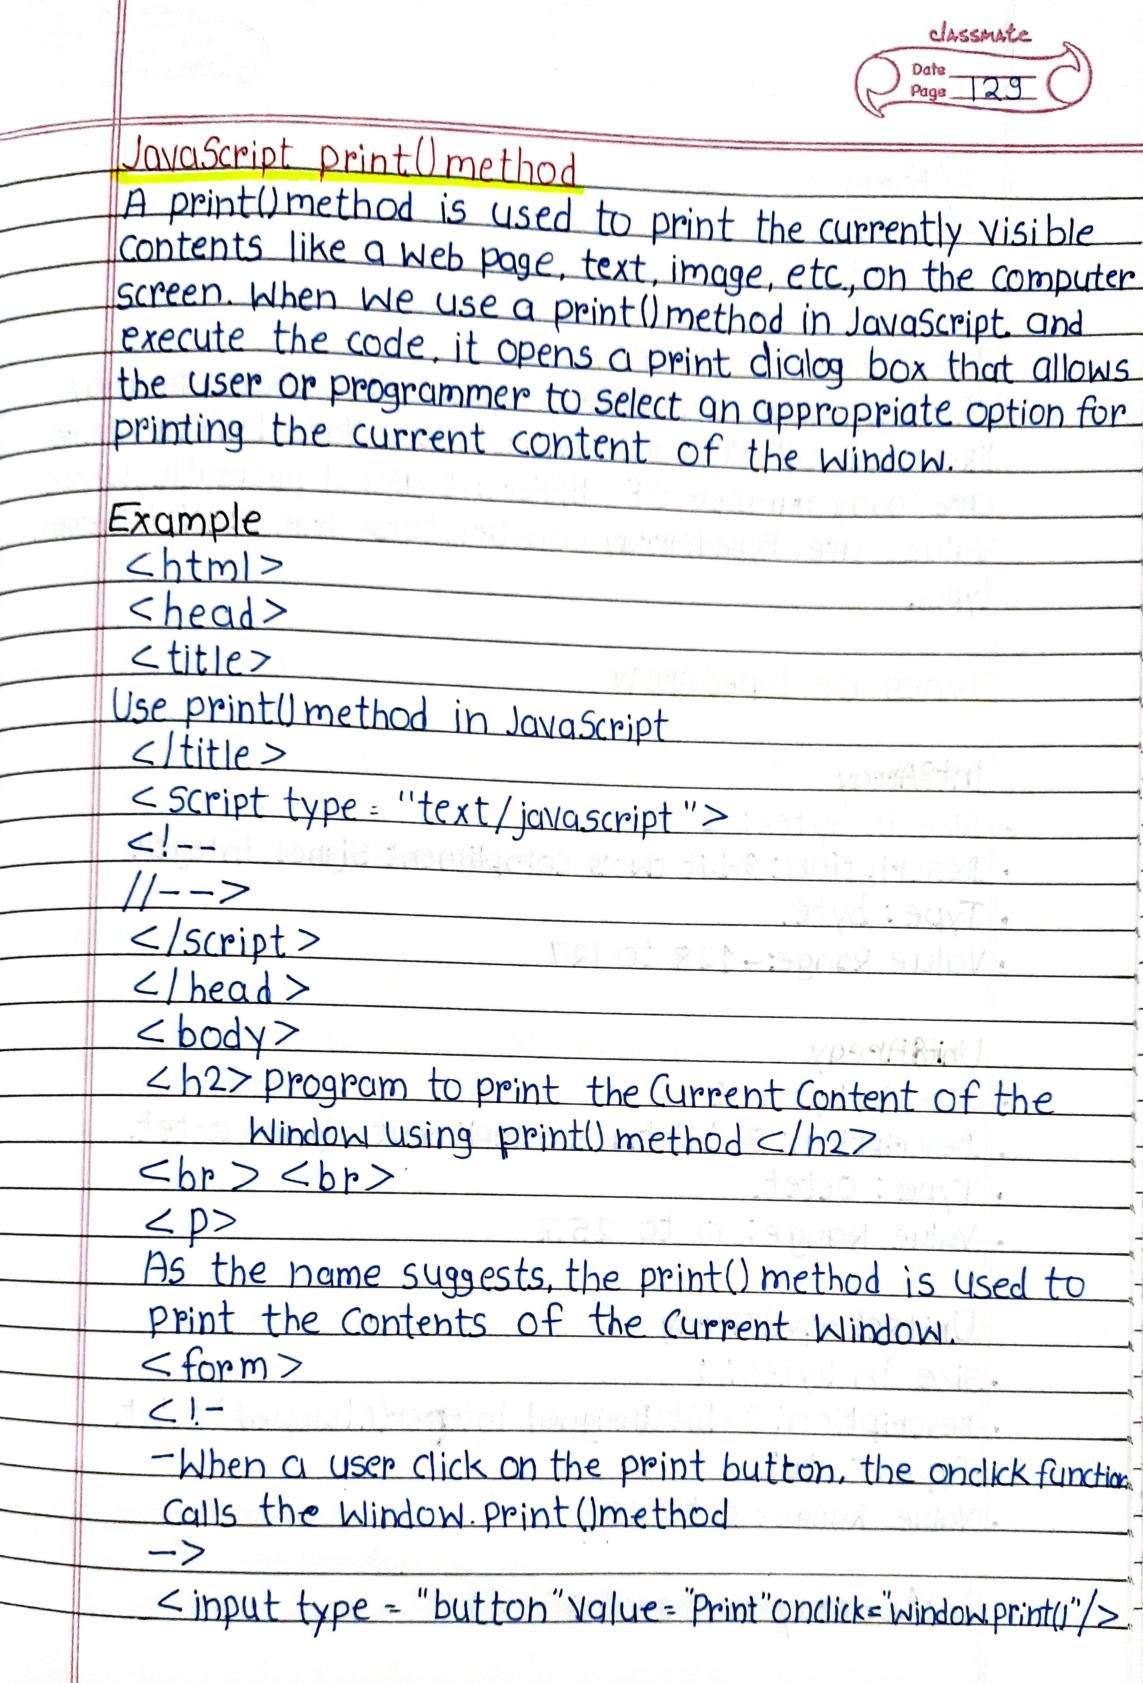 classmate
Date
Page 129
JavaScript print() method
A print() method is used to print the currently visible
contents like a web page, text, image, etc., on the computer
screen. When we use a print() method in JavaScript and
execute the code, it opens a print dialog box that allows
the user or programmer to select an appropriate option for
printing the current content of the window.
Example
<html>
<head>
<title>
Use print() method in JavaScript
</title>
<script type = "text/javascript">
<!--
//-->
</script>
</head>
<body>
<h2> program to print the Current Content of the
Window using print() method </h2>
<br> <br>
<p>
As the name suggests, the print() method is used to
print the contents of the Current Window.
<form>
<!-
-When a user click on the print button, the onclick function
Calls the Window.print() method
->
<input type = "button" value = "Print" onclick = "window.print()"/>